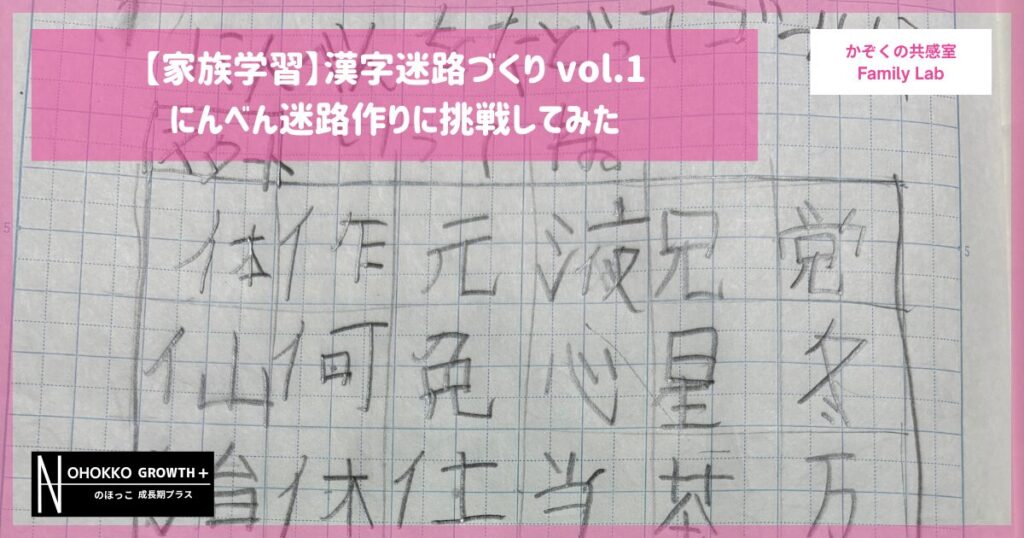 【家族学習】漢字迷路づくり vol.1
にんべん迷路作りに挑戦してみた
かぞくの共感室
Family Lab
体 作 元 液 兄 覚
仙 何 免 心 星 冬
休 仕 当 茶 万
5
5
NOHOKKO GROWTH+
のほっこ 成長期プラス